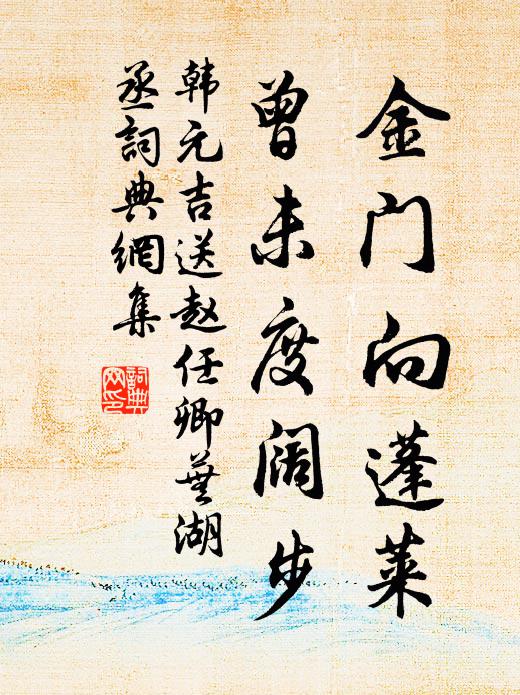 金门向蓬莱
曾未度阔步
韩元吉送赵任卿芜湖
丞詞典網集
詞典
网印